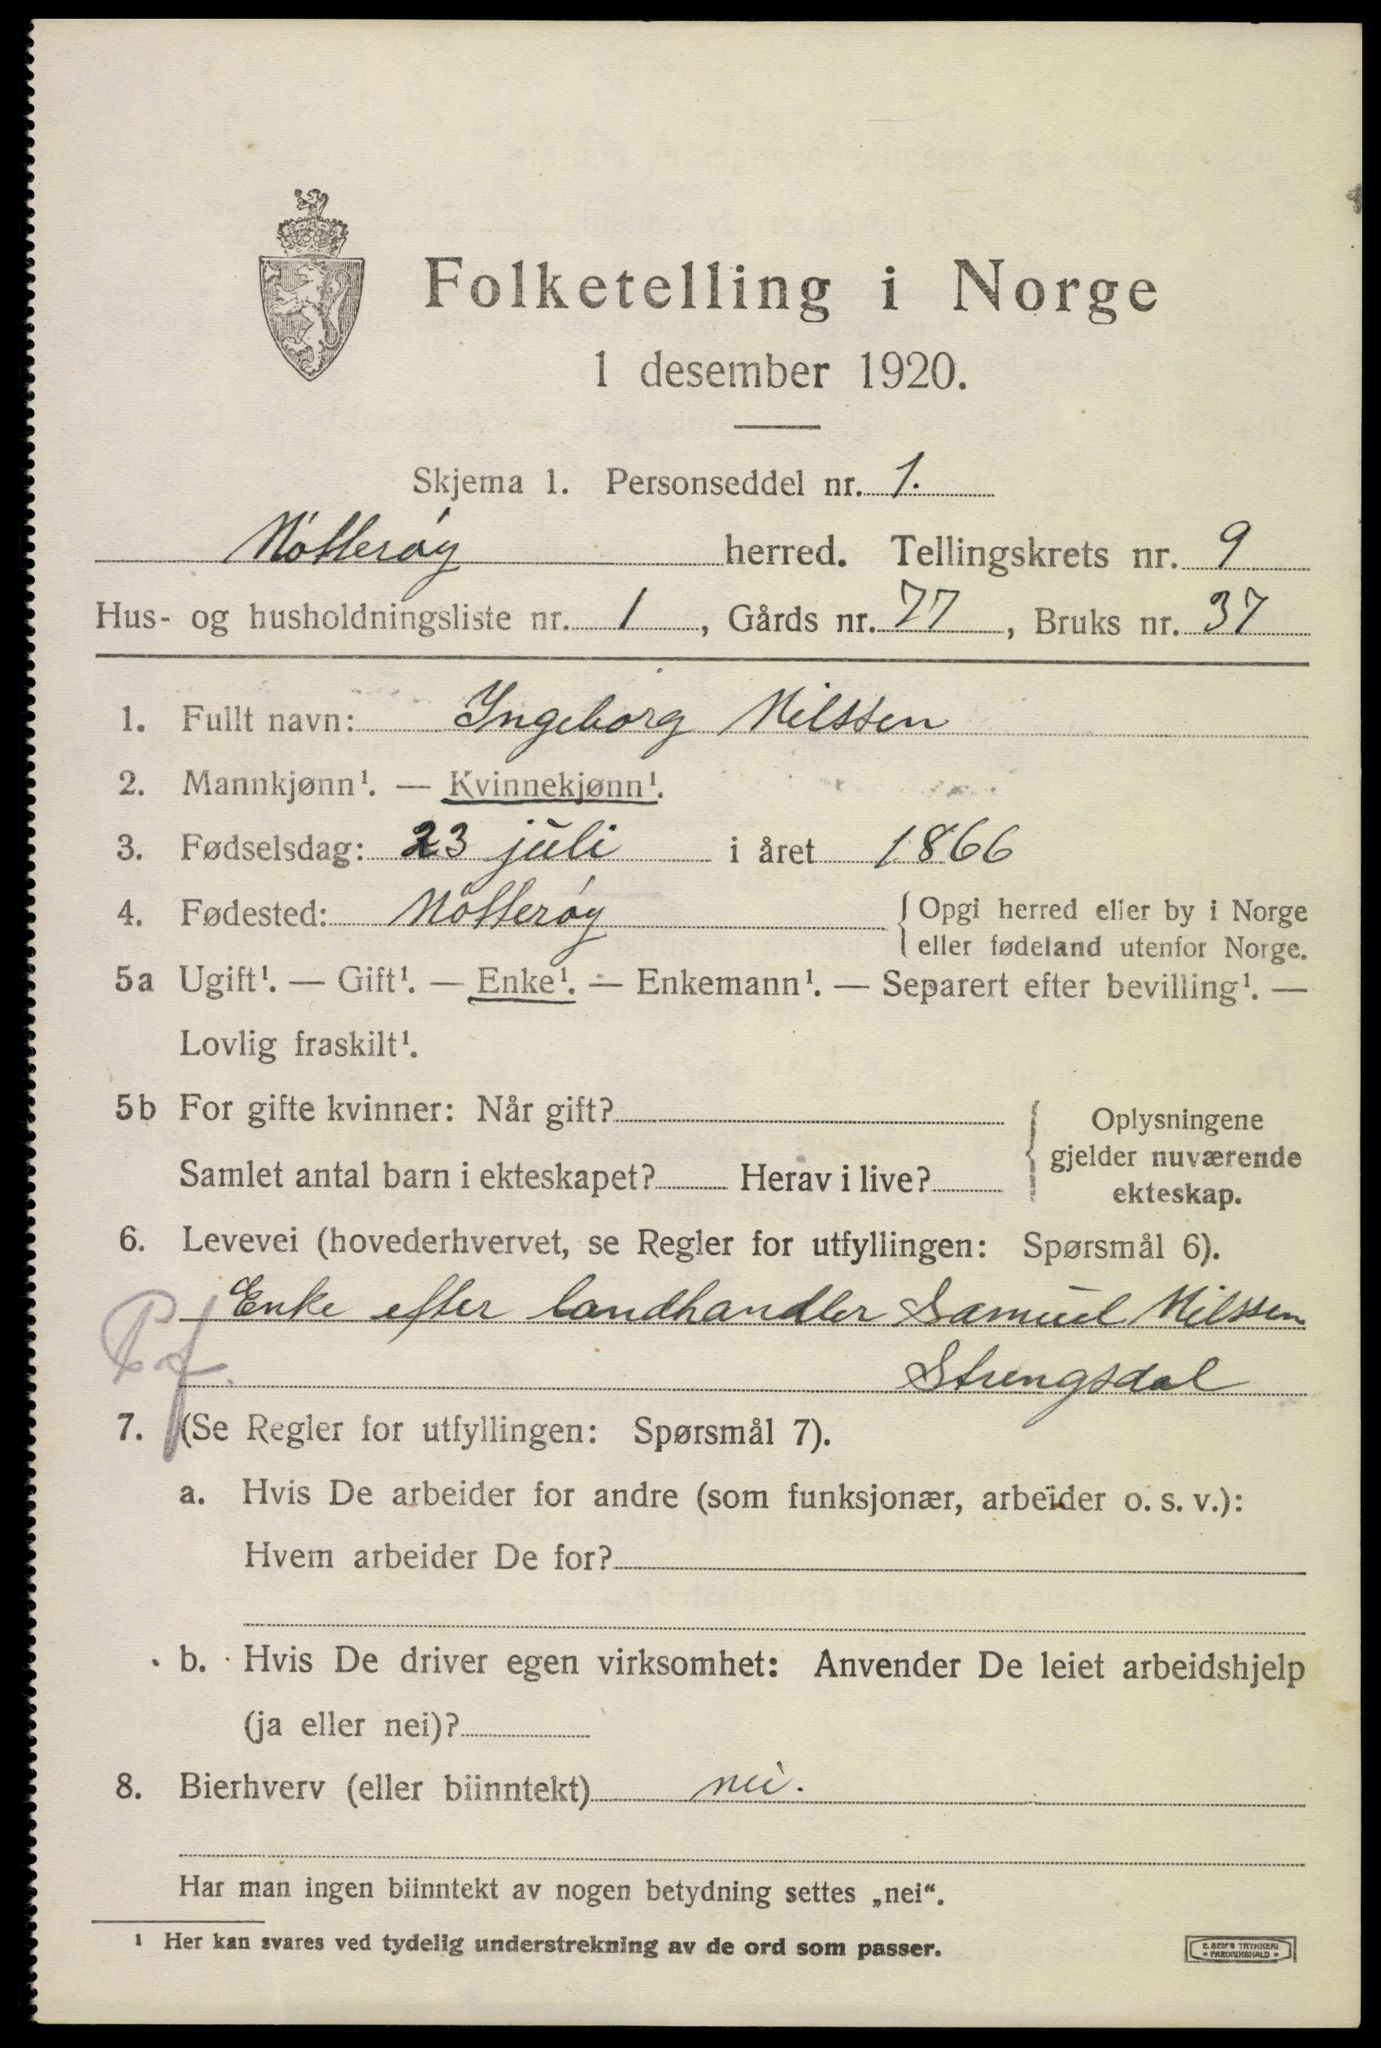 Folketelling i Norge
1 desember 1920.
Skjema 1. Personseddel nr. 1.
Nötterøy herred. Tellingskrets nr. 9
Hus- og husholdningsliste nr. 1, Gårds nr. 77, Bruks nr. 37
1. Fullt navn: Ingeborg Nilssen
2. Mannkjønn¹. — Kvinnekjønn¹.
3. Fødselsdag: 23 juli i året 1866
4. Fødested: Nötterøy {Opgi herred eller by i Norge
eller fødeland utenfor Norge.
5a Ugift¹. — Gift¹. — Enke¹. — Enkemann¹. — Separert efter bevilling¹. —
Lovlig fraskilt¹.
5b For gifte kvinner: Når gift? {Oplysningene
gjelder nuværende
ekteskap.
Samlet antal barn i ekteskapet? Herav i live?
6. Levevei (hovederhvervet, se Regler for utfyllingen: Spørsmål 6).
Enke efter landhandler Samuel Nilssen
Strengsdal
7. (Se Regler for utfyllingen: Spørsmål 7).
a. Hvis De arbeider for andre (som funksjonær, arbeider o. s. v.):
Hvem arbeider De for?
b. Hvis De driver egen virksomhet: Anvender De leiet arbeidshjelp
(ja eller nei)?
8. Bierhverv (eller biinntekt) nei.
Har man ingen biinntekt av nogen betydning settes „nei“.
¹ Her kan svares ved tydelig understrekning av de ord som passer.
E. SEM'S TRYKKERI
• FREDRIKSHALD •